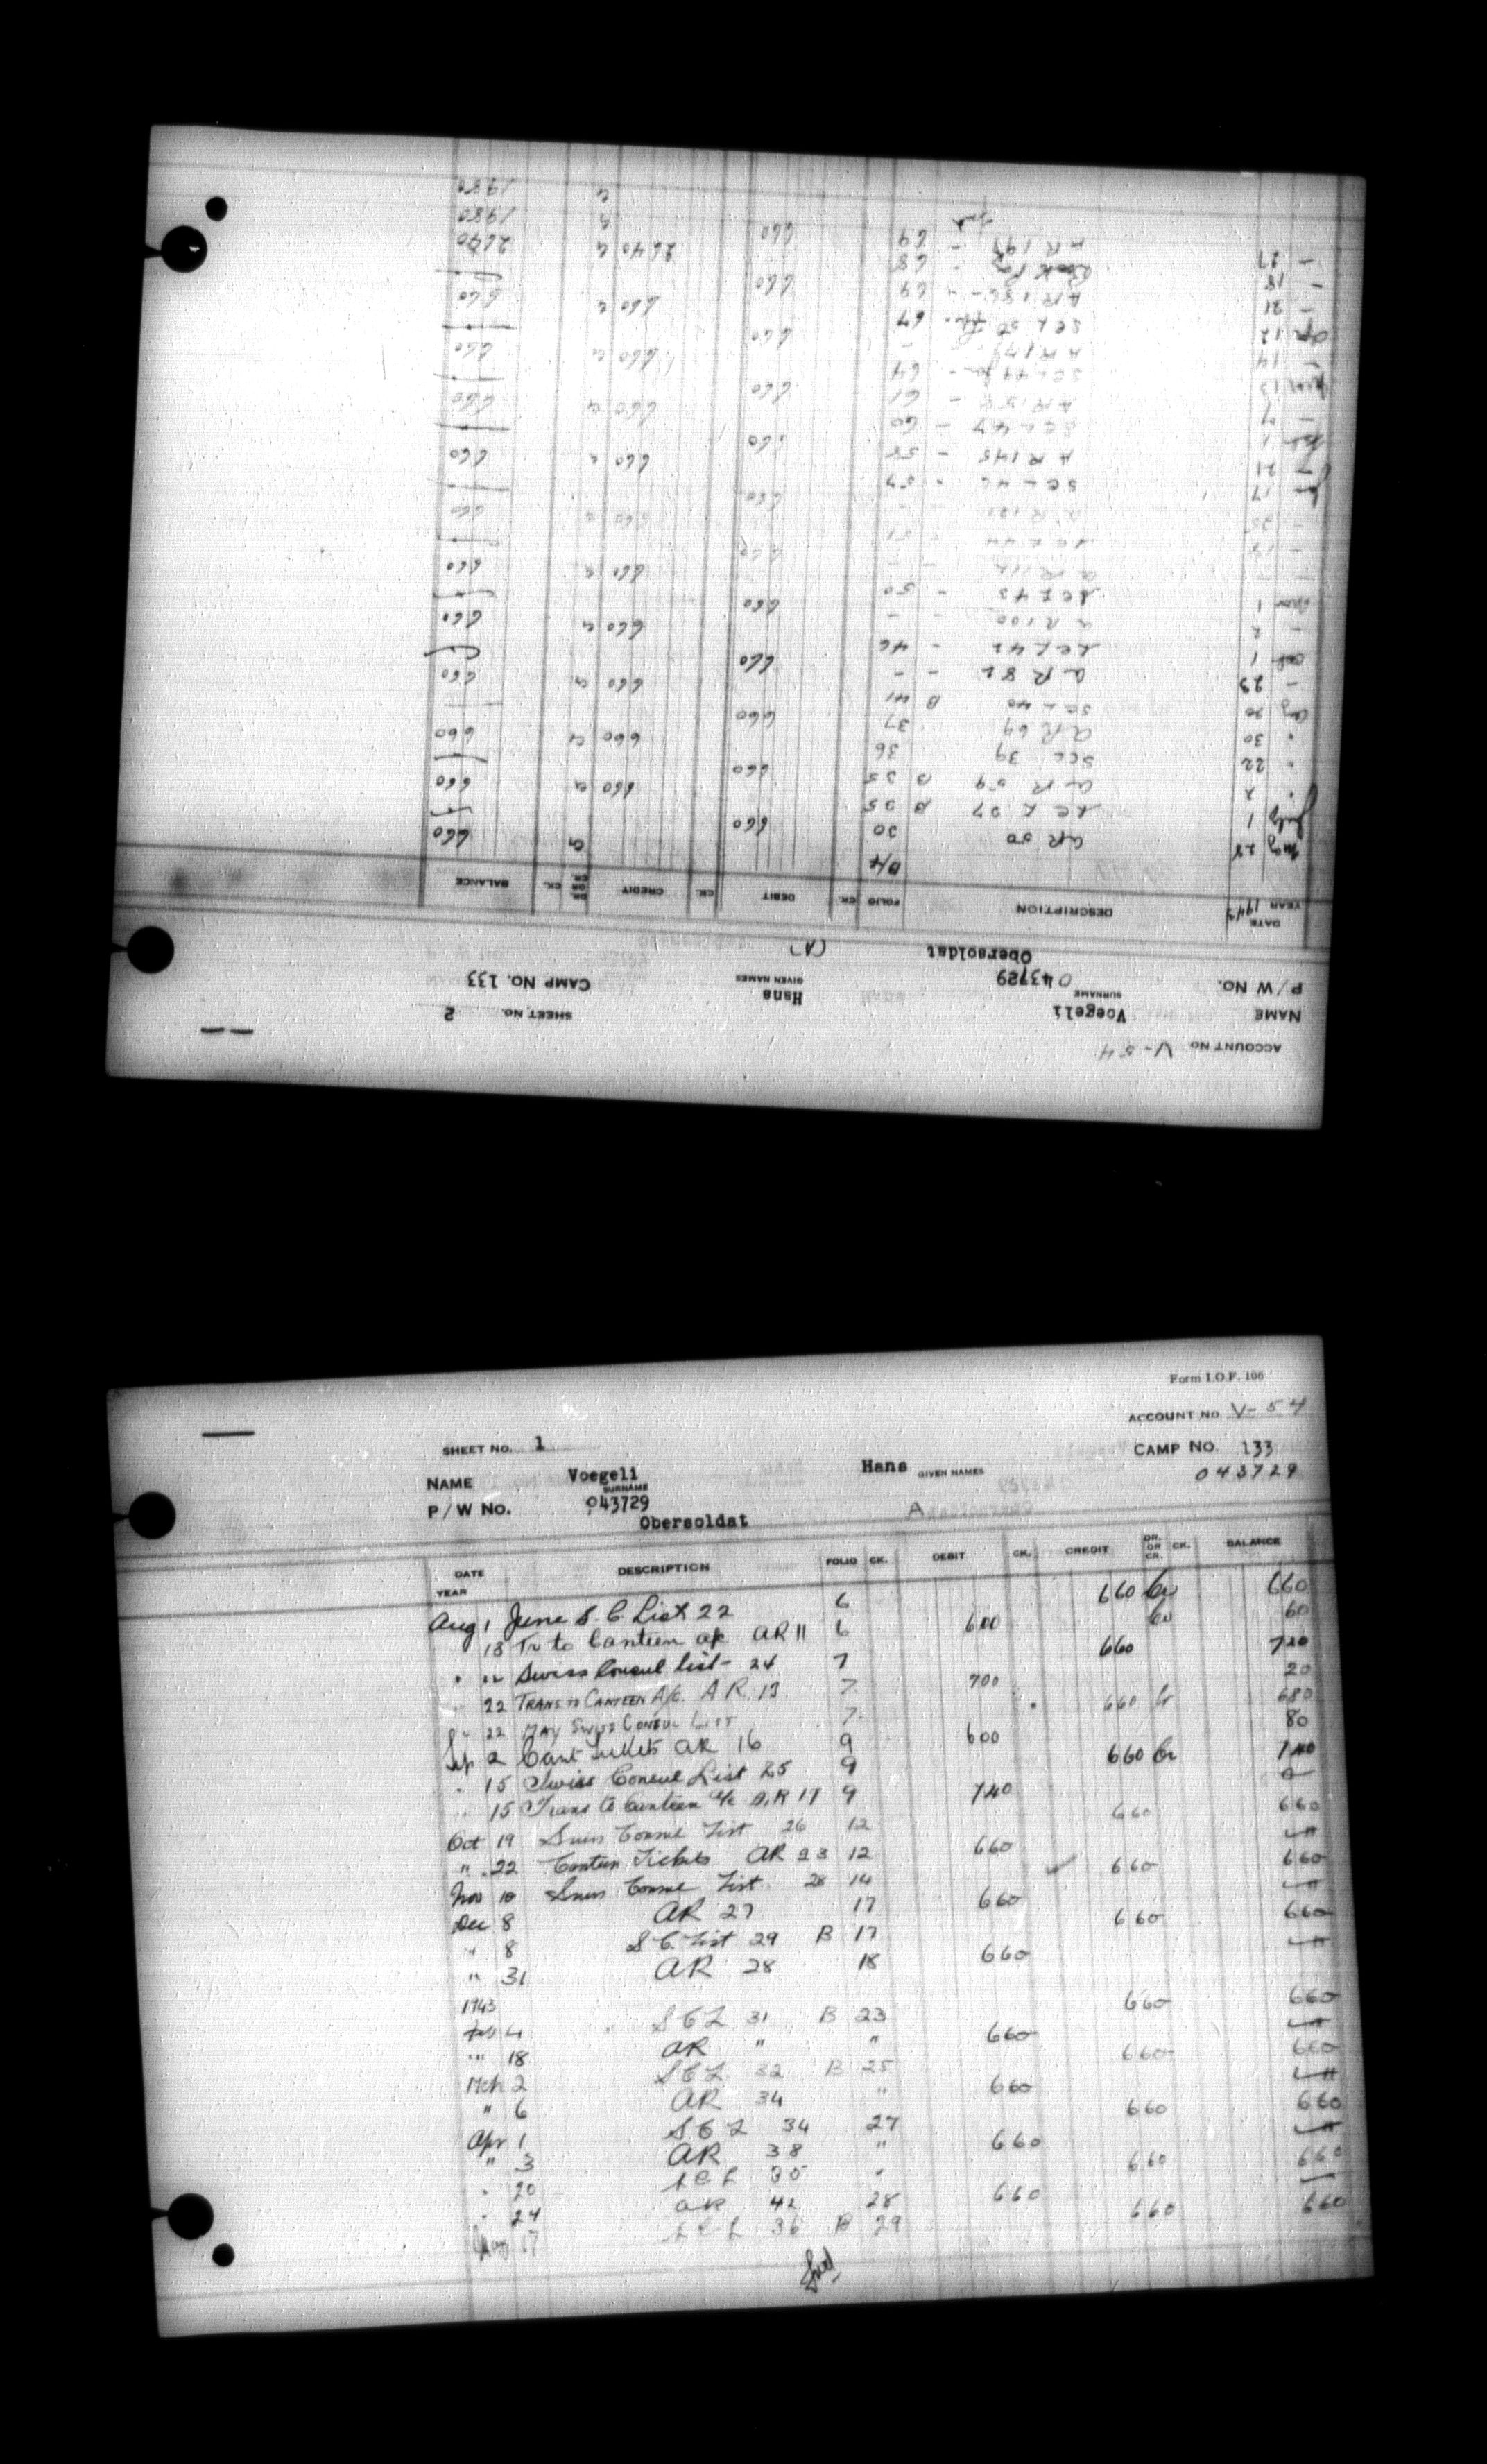 Form I.O.F. 106
ACCOUNT NO. V-54
SHEET NO. 1
CAMP NO. 133
NAME Voegeli Hans
SURNAME GIVEN NAMES
043729
P/W No. 043729
Obersoldat A
DATE DESCRIPTION FOLIO CK. DEBIT CK. CREDIT DR. OR CR. CK. BALANCE
YEAR
Aug 1 June S. C. List 22 6 660 Cr 660
13 Tr to Canteen a/c AR 11 6 600 Cr 60
" " Swiss Consul list - 24 7 660 720
22 TRANS TO CANTEEN A/C. A R. 13 7 700 20
22 MAY SWISS CONSUL LIST 7 660 Cr 680
Sep 2 Cant Tickets AR 16 9 600 80
" 15 Swiss Consul List 25 9 660 Cr 740
" 15 Trans to Canteen a/c A.R 17 9 740
Oct 19 Swiss Consul List 26 12 660 660
" 22 Canteen Tickets AR 23 12 660
Nov 10 Swiss Consul List 28 14 660 660
Dec 8 AR 27 17 660
" 8 S C. List 29 B 17 660 660
" 31 AR 28 18 660
1943
Feb 4 S C L 31 B 23 660 660
" 18 AR " " 660
Mch 2 S C L 32 B 25 660 660
" 6 AR 34 " 660
Apr 1 S C L 34 27 660 660
" 3 AR 38 " 660
" 20 S C L 35 " 660 660
" 24 AR 42 28 660
May 17 S C L 36 B 29 660 660
ACCOUNT NO V-54
NAME Voegeli Hans SHEET NO. 2
SURNAME GIVEN NAMES
P/W No. 043729 CAMP NO. 133
Obersoldat (A)
DATE DESCRIPTION FOLIO CK. DEBIT CK. CREDIT DR. OR CR. CK. BALANCE
YEAR 1943
B/F 660
May 28 AR 50 30 660
July 1 S C L 37 B 35 660 660
" 2 A R 59 B 35 660
" 22 SCL 39 36 660 660
" 30 A R 69 37 660
Aug 20 SCL 40 B 41 660 660
- 23 A R 82 - - 660
Oct 1 S C L 42 - 46 660 660
- 2 A R 100 - - 660
Nov 1 S C L 43 - 50 660 660
- 18 S C L 44 - 51 660 660
- 25 A R 121 - - 660
Jan 17 SCL 46 - 57 660 660
" 21 A R 145 - 58 660
Feb 1 SCL 47 - 60 660 660
- 7 A R - 61 660
SCL 49 - 64 660 660
- 14 A R - 660
12 SCL 67 660 660
- 21 A R - 69 660
- 18 Back Pay - 68 2640 2640
- 27 A R - 69 660 1980
1980